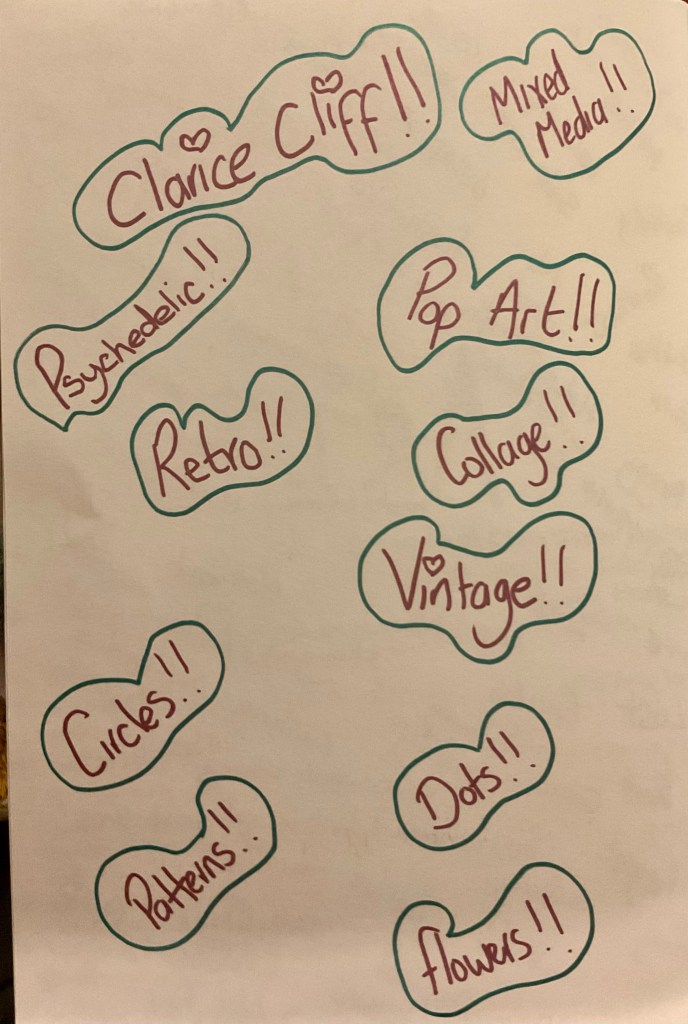 Clarice Cliff!!
Mixed
Media!!
Psychedelic!!
Pop Art!!
Retro!!
Collage!!
Vintage!!
Circles!!
Dots!!
Patterns!!
flowers!!